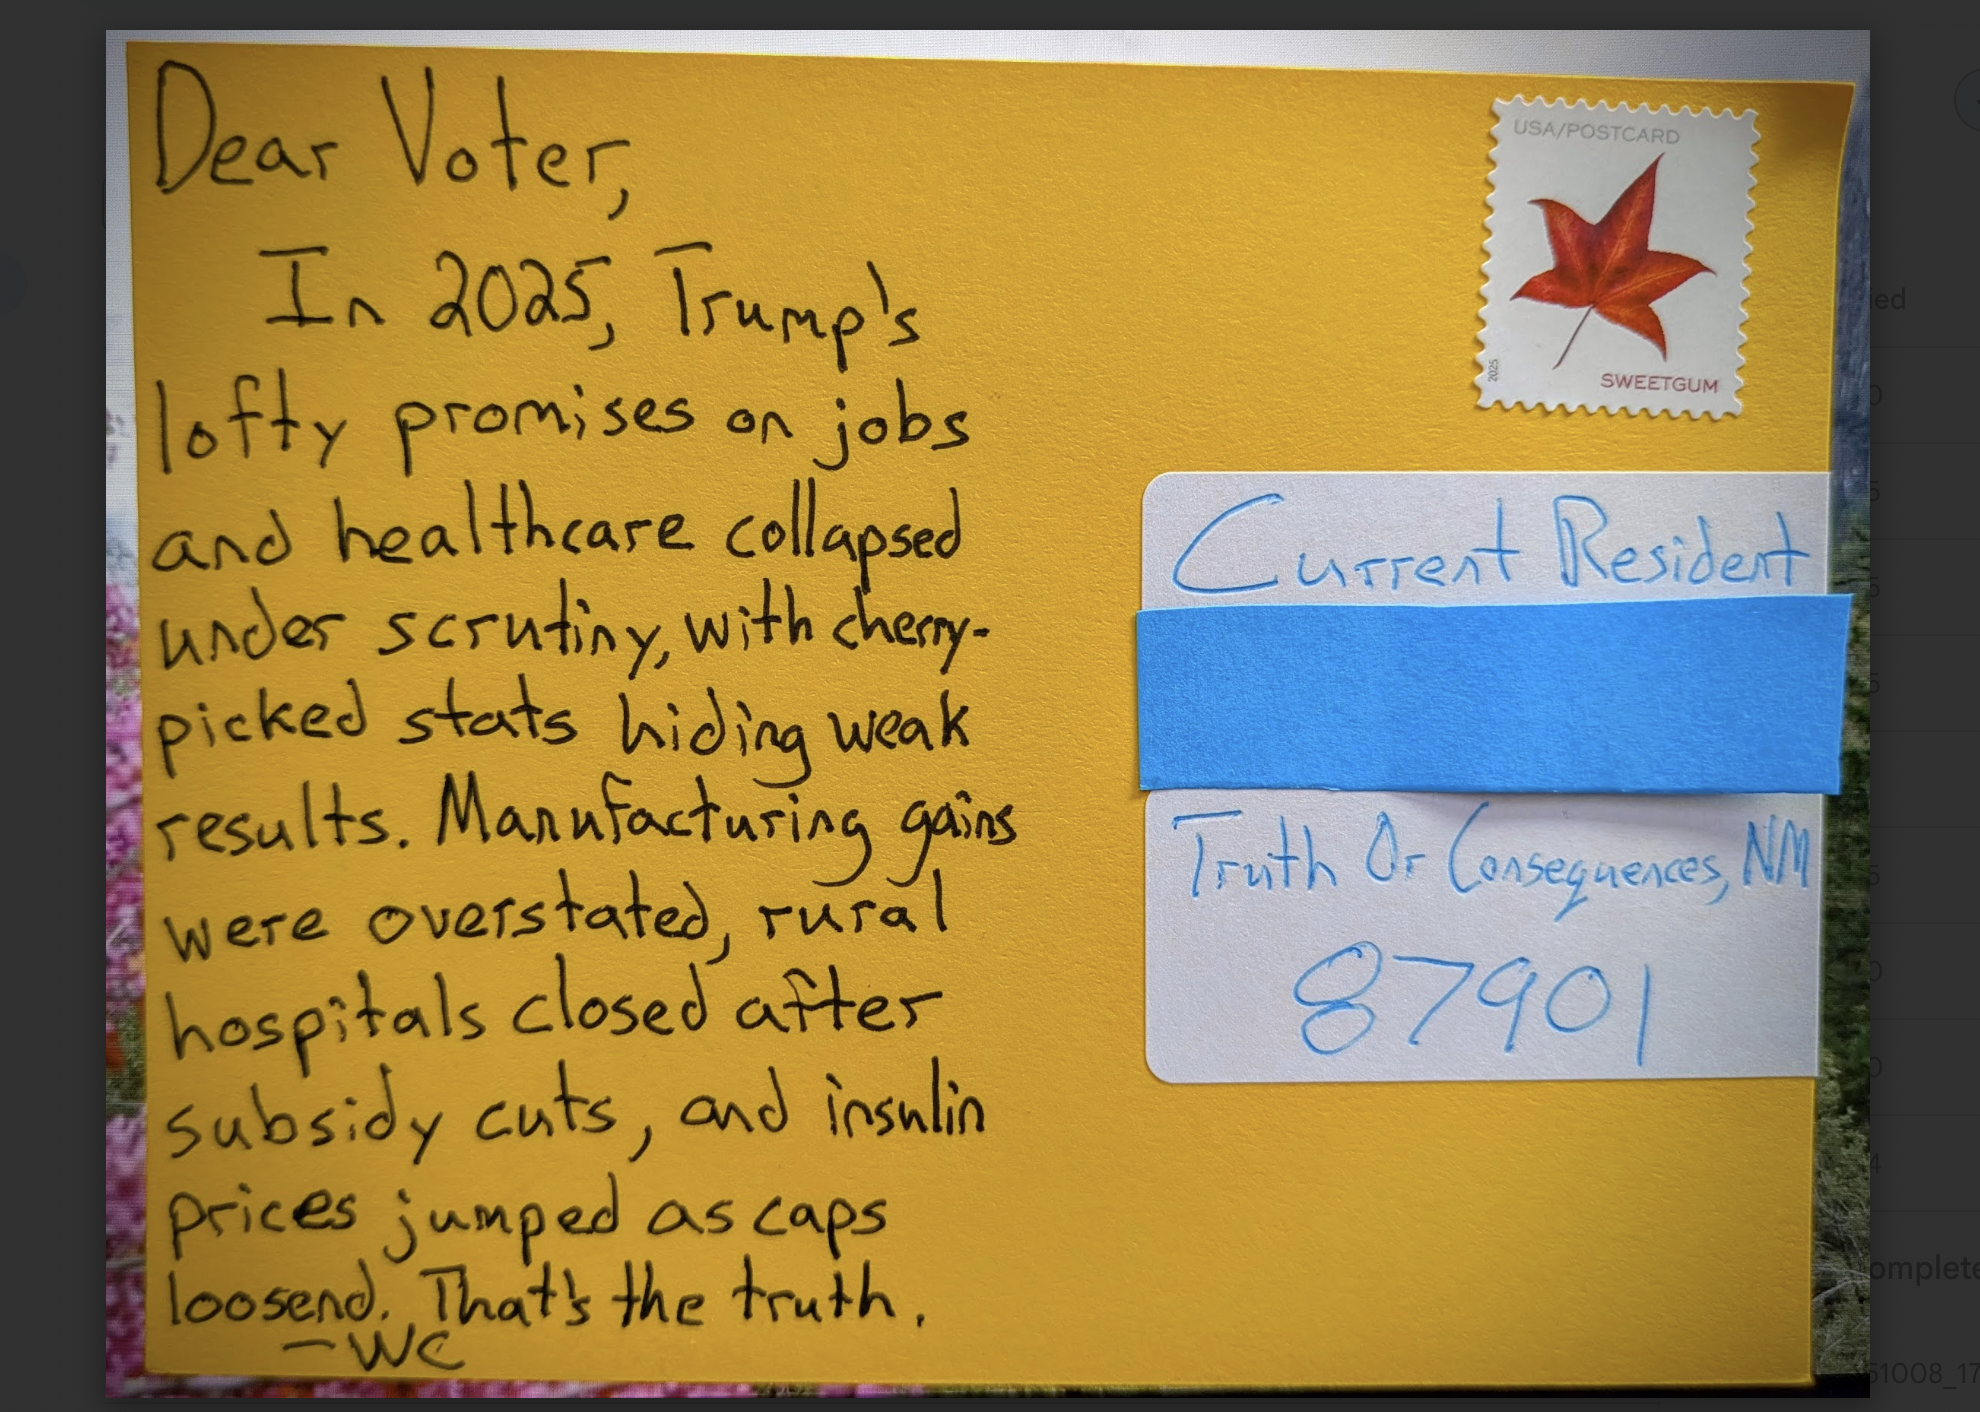 Dear Voter,
In 2025, Trump's
lofty promises on jobs
and healthcare collapsed
under scrutiny, with cherry-
picked stats hiding weak
results. Manufacturing gains
were overstated, rural
hospitals closed after
subsidy cuts, and insulin
prices jumped as caps
loosend. That's the truth.
-WC
USA/POSTCARD
2025
SWEETGUM
Current Resident
Truth Or Consequences, NM
87901
ied
0
5
5
5
5
0
0
4
omplete
51008_17